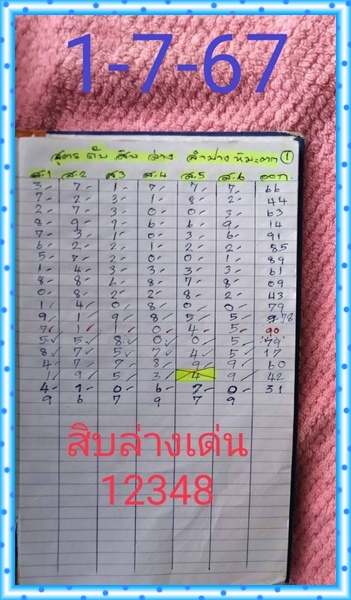 1-7-67
สูตร ดับ สิบ ล่าง ลำปาง หิมะตก ①
ส.1 ส.2 ส.3 ส.4 ส.5 ส.6 ออก
3 7 1 7 7 7 66
7 2 3 1 8 2 44
2 7 3 0 0 3 63
9 9 2 6 6 9 14
7 3 1 0 3 6 91
6 2 2 1 2 2 85
5 7 2 0 0 1 89
1 4 3 3 3 3 61
8 8 6 8 7 8 09
0 8 2 2 8 2 43
1 4 0 8 0 0 79
9 1 9 8 5 5 78
7 1 1 0 4 5 90
5 5 8 0 0 5 79
8 7 5 7 4 5 17
4 7 7 8 9 9 60
1 9 5 3 4 9 42
4 1 0 6 7 0 31
9 6 7 9 7 9
สิบล่างเด่น
12348